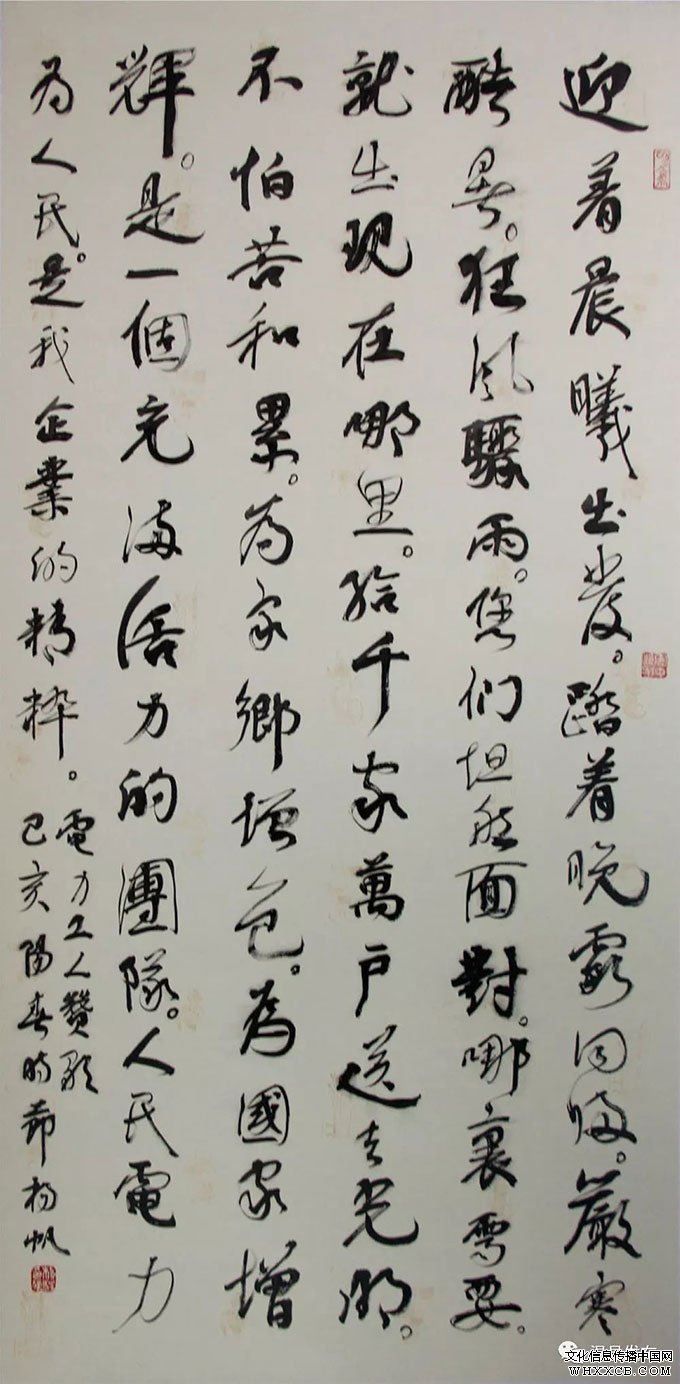 迎着晨曦出发。踏着晚霞同归。嚴寒
酷暑。狂风驟雨。您们坦然面對。哪裏需要。
就出现在哪里。给千家萬户送去光明。
不怕苦和累。为家鄉增色。為國家增
輝。是一個充满活力的團隊。人民電力
为人民。是我企業的精粹。
電力工人贊歌
己亥陽春時節 楊帆
文化信息传播中国网
WHXXCB.COM